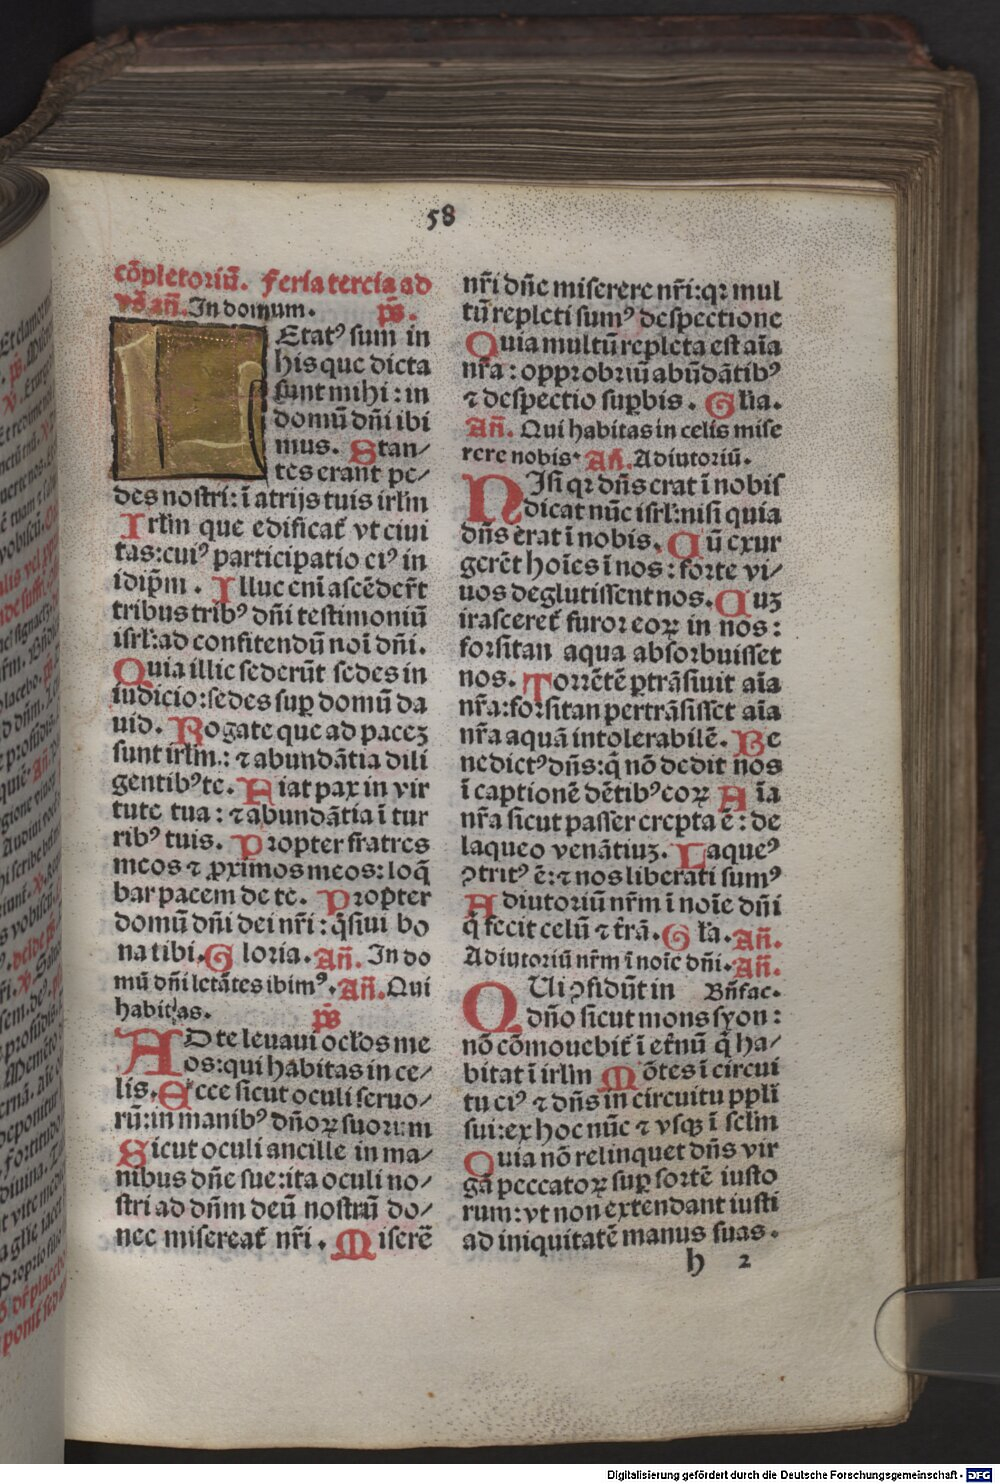 58
cōpletoriū. Feria tercia ad
vs̄ añ. In domum. ps̄.
Letatꝰ sum in
his que dicta
sunt mihi : in
domū dñi ibi
mus. Stan/
tes erant pe/
des nostri: ī atrijs tuis irlm̄
Irlm̄ que edificat̄ vt ciui
tas: cuiꝰ participatio eiꝰ in
idip̄m . Illuc eni ascēder̄t
tribus tribꝰ dñi testimoniū
isrl̄: ad confitendū noī dñi.
Quia illic sederūt sedes in
iudicio: sedes sup̱ domū da
uid. Rogate que ad pacez
sunt irlm̄.: ⁊ abundātia dili
gentibꝰ te. Fiat pax in vir
tute tua : ⁊ abundātia ī tur
ribꝰ tuis. Propter fratres
meos ⁊ ꝓximos meos: loq̄
bar pacem de te. Propter
domū dñi dei nr̄i : q̄siui bo
na tibi. Gloria. Añ. In do
mū dñi letātes ibimꝰ. Añ. Qui
habitas. ps̄
AD te leuaui oc̄los me
os: qui habitas in ce/
lis. Ecce sicut oculi seruo/
rū: in manibꝰ dñoꝝ suorum
Sicut oculi ancille in ma/
nibus dñe sue: ita oculi no/
stri ad dñm deū nostrū do/
nec misereat̄ nr̄i . Miserē
nr̄i dñe miserere nr̄i: qꝛ mul
tū repleti sumꝰ despectione
Quia multū repleta est aīa
nr̄a : opprobriū abūdātibꝰ
⁊ despectio sup̱bis . Gl̄ia.
Añ. Qui habitas in celis mise
rere nobis. Añ. Adiutoriū.
NIsi qꝛ dñs erat ī nobis
dicat nūc isrl̄: nisi quia
dñs erat ī nobis. Cū exur
gerēt hoīes ī nos : forte vi/
uos deglutissent nos. Cuꝫ
irasceret̄ furor eoꝝ in nos :
forsitan aqua absorbuisset
nos. Torrētē ꝑtrāsiuit aīa
nr̄a: forsitan pertrāsisset aīa
nr̄a aquā intolerabilē. Be
nedictꝰ dñs: q̄ nō dedit nos
ī captionē dētibꝰ eoꝝ Aīa
nr̄a sicut passer erepta ē : de
laqueo venātiuꝫ. Laqueꝰ
ꝯtritꝰ ē: ⁊ nos liberati sumꝰ
Adiutoriū nr̄m ī noīe dñi
q̄ fecit celū ⁊ t̄rā. Gl̄a. Añ.
Adiutoriū nr̄m ī noīe dñi. Añ.
QUi ꝯfidūt in Bn̄fac.
dño sicut mons syon :
nō cōmouebit̄ ī et̄nū q̄ ha/
bitat ī irlm̄ Mōtes ī circui
tu eiꝰ ⁊ dñs in circuitu ppl̄i
sui: ex hoc nūc ⁊ vsqꝫ ī sclm̄
Quia nō relinquet dñs vir
gā peccatoꝝ sup̱ sortē iusto
rum: vt non extendant iusti
ad iniquitatē manus suas .
h 2
Digitalisierung gefördert durch die Deutsche Forschungsgemeinschaft - DFG